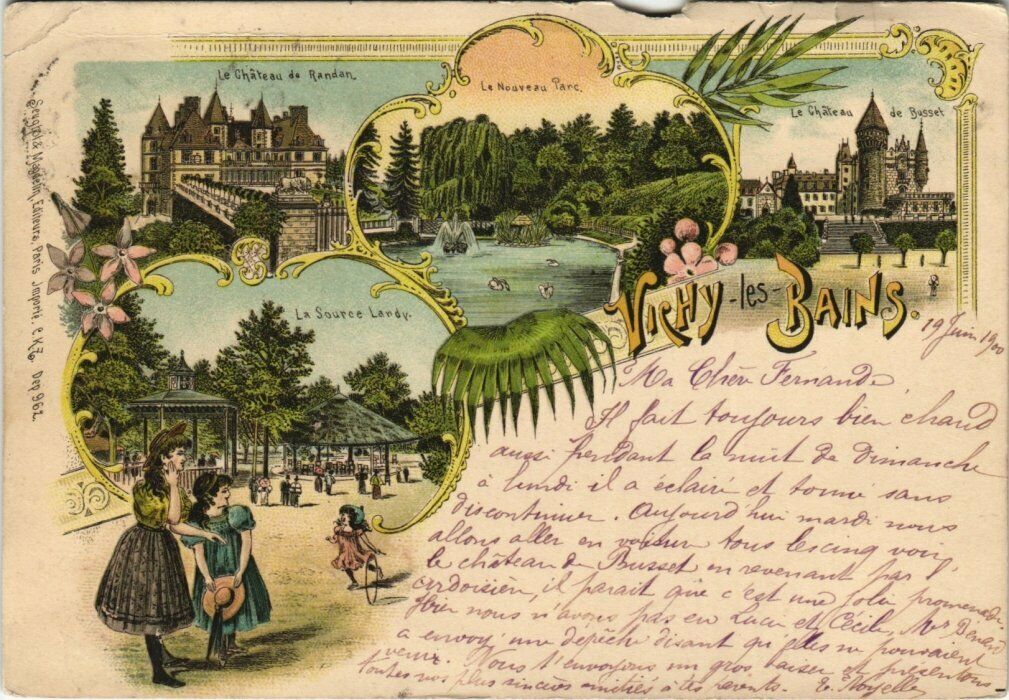 Le Château de Randan.
Le Nouveau Parc.
Le Château de Busset
La Source Lardy.
VICHY-les-BAINS.
Editeurs, Paris Importé. C.K.Z. Dep 962.
19 Juin 1900
Ma Chère Fernande,
Il fait toujours bien chaud
aussi pendant la nuit de Dimanche
à lundi il a éclairé et tonné sans
discontinuer. Aujourd'hui mardi nous
allons aller en voiture tous les cinq voir
le château de Busset en revenant par l'
ardoisière, il parait que c'est une jolie promenade.
Hier nous n'avons pas eu Lucie et Cécile, Mme Benard
a envoyé une depêche disant qu'elles ne pouvaient
venir. Nous t'envoyons un gros baiser et présentons
toutes nos plus sincères amitiés à tes parents.